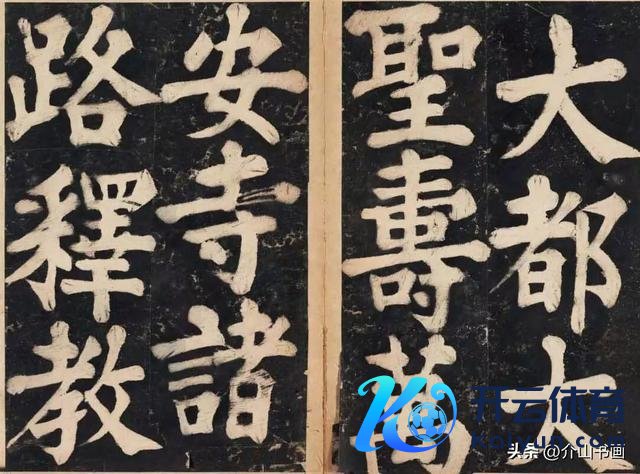 大都大
聖壽萬
安寺諸
路釋教
开云体育
头条@介山书画